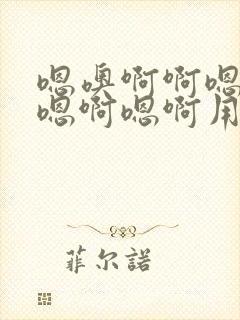 嗯噢啊啊嗯
嗯啊嗯啊用
菲尔諾